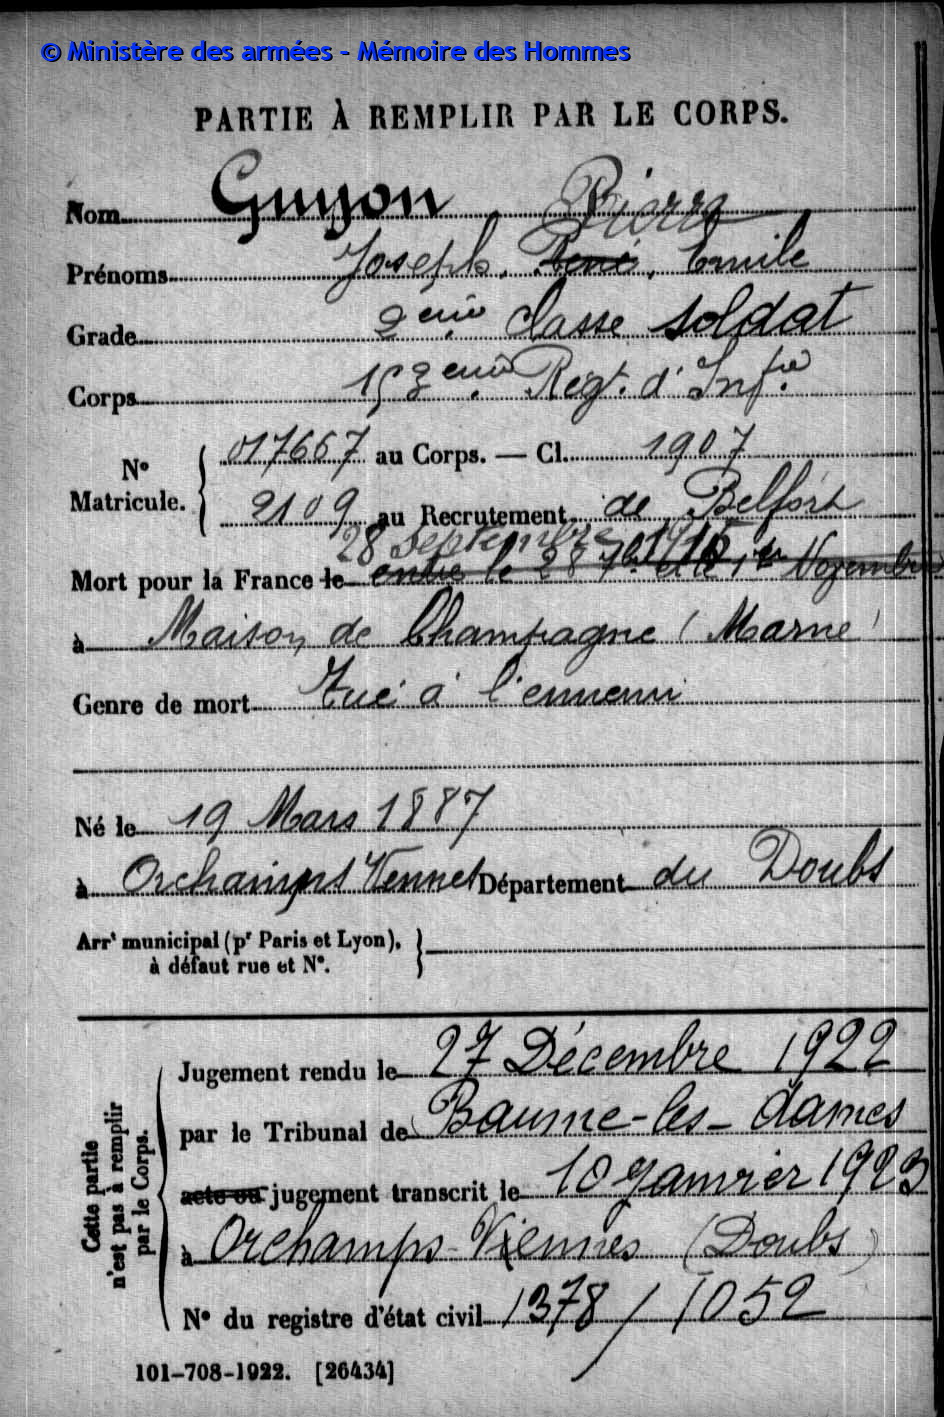 © Ministère des armées - Mémoire des Hommes
PARTIE À REMPLIR PAR LE CORPS.
Nom Guyon
Pierre
Prénoms Joseph, René, Emile
Grade 2ème classe soldat
Corps 152ème Régt. d'Infie
N° Matricule. 017667 au Corps. — Cl. 1907
2109 au Recrutement de Belfort
28 septembre 1915
Mort pour la France le entre le 28 7b et le 1er Novembre
à Maison de Champagne (Marne)
Genre de mort Tué à l'ennemi
Né le 19 Mars 1887
à Orchamps Vennes Département du Doubs
Arrt municipal (pr Paris et Lyon),
à défaut rue et N°.
Cette partie n'est pas à remplir par le Corps.
Jugement rendu le 27 Décembre 1922
par le Tribunal de Baume-les-dames
acte ou jugement transcrit le 10 Janvier 1923
à Orchamps-Vennes (Doubs)
N° du registre d'état civil 1378/1052
101-708-1922. [26434]